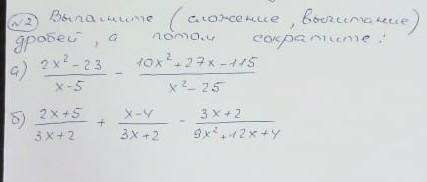 №2) Выполните (сложение, вычитание)
дробей, а потом сократите:
а) (2x²-23)/(x-5) - (10x²+27x-115)/(x²-25)
б) (2x+5)/(3x+2) + (x-4)/(3x+2) - (3x+2)/(9x²+12x+4)